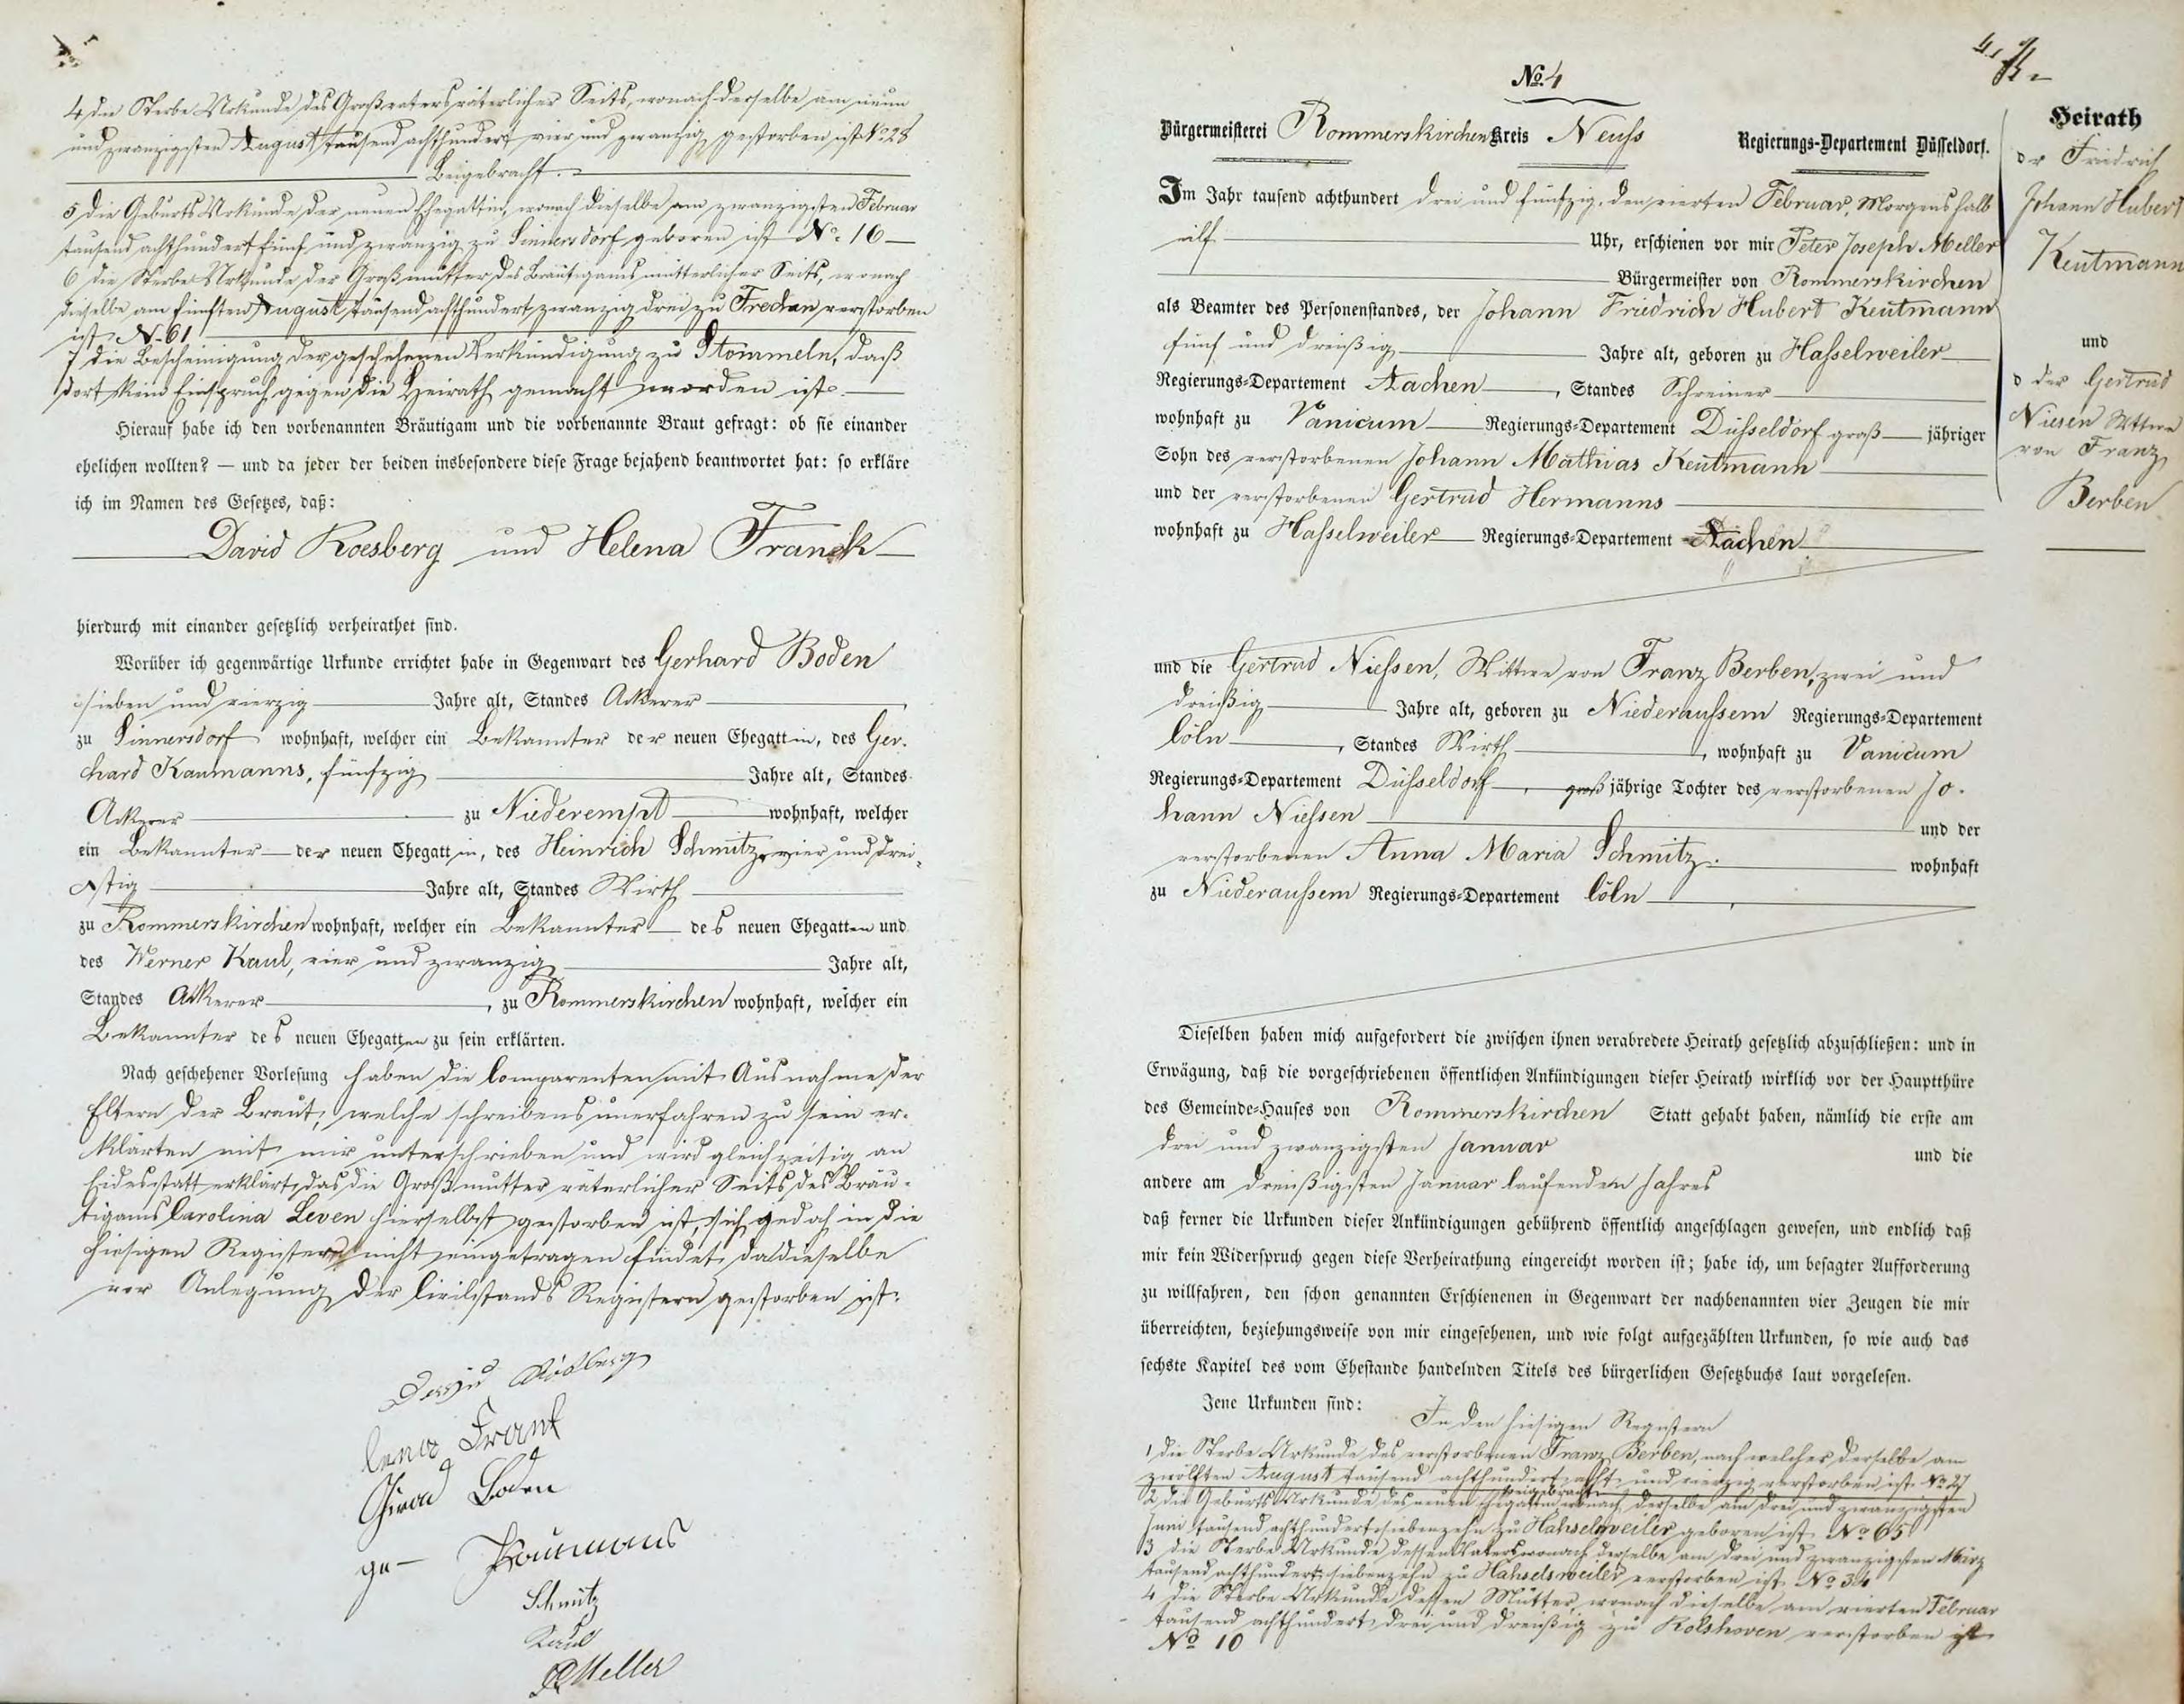 4 die Sterbe Urkunde des Großvaters väterlicher Seits, wonach derselbe am neun
und zwanzigsten August tausend achthundert vier und zwanzig gestorben ist No 28
Beigebracht.
5 die Geburts Urkunde der neuen Ehegattin, wonach dieselbe am zwanzigsten Februar
tausend achthundert fünf und zwanzig zu Sinnersdorf geboren ist No. 16
6 die Sterbe Urkunde der Großmutter des Bräutigams mütterlicher Seits, wonach
dieselbe am fünften August tausend achthundert zwanzig drei zu Frechen verstorben
ist N. 61
7 die Bescheinigung der geschehenen Verkündigung zu Stommeln, daß
dort kein Einspruch gegen die Heirath gemacht worden ist.
Hierauf habe ich den vorbenannten Bräutigam und die vorbenannte Braut gefragt: ob sie einander
ehelichen wollten? — und da jeder der beiden insbesondere diese Frage bejahend beantwortet hat: so erkläre
ich im Namen des Gesetzes, daß:
David Roesberg und Helena Franck
hierdurch mit einander gesetzlich verheirathet sind.
Worüber ich gegenwärtige Urkunde errichtet habe in Gegenwart des Gerhard Boden
sieben und vierzig Jahre alt, Standes Ackerer
zu Sinnersdorf wohnhaft, welcher ein Bekannter der neuen Ehegattin, des Ger-
hard Kaumanns, fünfzig Jahre alt, Standes
Ackerer zu Niederempt wohnhaft, welcher
ein Bekannter der neuen Ehegattin, des Heinrich Schmitz, vier und drei-
ßig Jahre alt, Standes Wirth
zu Rommerskirchen wohnhaft, welcher ein Bekannter des neuen Ehegatten und
des Werner Kaul, vier und zwanzig Jahre alt,
Standes Ackerer, zu Rommerskirchen wohnhaft, welcher ein
Bekannter des neuen Ehegatten zu sein erklärten.
Nach geschehener Vorlesung haben die Comparenten mit Ausnahme der
Eltern der Braut, welche schreibens unerfahren zu sein er-
klärten mit mir unterschrieben und wird gleichzeitig an
Eidesstatt erklärt, das die Großmutter väterlicher Seits des Bräu-
tigams Carolina Leven hierselbst gestorben ist, sich jedoch in die
hiesigen Registern nicht eingetragen findet, da dieselbe
vor Anlegung der Civilstands Registern gestorben ist.
Lena Frank
Boden
Kaumans
Schmitz
Kaul
Meller
No 4
Bürgermeisterei Rommerskirchen Kreis Neuss Regierungs-Departement Düsseldorf.
Im Jahr tausend achthundert drei und fünfzig, den vierten Februar, Morgens halb
eilf Uhr, erschienen vor mir Peter Joseph Meller
Bürgermeister von Rommerskirchen
als Beamter des Personenstandes, der Johann Friedrich Hubert Keutmann
fünf und dreißig Jahre alt, geboren zu Hasselweiler
Regierungs-Departement Aachen, Standes Schreiner
wohnhaft zu Vanicum Regierungs-Departement Düsseldorf groß jähriger
Sohn des verstorbenen Johann Mathias Keutmann
und der verstorbenen Gertrud Hermanns
wohnhaft zu Hasselweiler Regierungs-Departement Aachen
und die Gertrud Niessen, Wittwe von Franz Berben, zwei und
dreißig Jahre alt, geboren zu Niederaussem Regierungs-Departement
Cöln, Standes Wirth, wohnhaft zu Vanicum
Regierungs-Departement Düsseldorf, groß jährige Tochter des verstorbenen Jo-
hann Niessen und der
verstorbenen Anna Maria Schmitz wohnhaft
zu Niederaussem Regierungs-Departement Cöln
Dieselben haben mich aufgefordert die zwischen ihnen verabredete Heirath gesetzlich abzuschließen: und in
Erwägung, daß die vorgeschriebenen öffentlichen Ankündigungen dieser Heirath wirklich vor der Hauptthüre
des Gemeinde-Hauses von Rommerskirchen Statt gehabt haben, nämlich die erste am
drei und zwanzigsten Januar und die
andere am dreißigsten Januar laufenden Jahres
daß ferner die Urkunden dieser Ankündigungen gebührend öffentlich angeschlagen gewesen, und endlich daß
mir kein Widerspruch gegen diese Verheirathung eingereicht worden ist; habe ich, um besagter Aufforderung
zu willfahren, den schon genannten Erschienenen in Gegenwart der nachbenannten vier Zeugen die mir
überreichten, beziehungsweise von mir eingesehenen, und wie folgt aufgezählten Urkunden, so wie auch das
sechste Kapitel des vom Ehestande handelnden Titels des bürgerlichen Gesetzbuchs laut vorgelesen.
Jene Urkunden sind: In den hiesigen Registern
1 die Sterbe Urkunde des verstorbenen Franz Berben, nach welcher derselbe am
zwölften August tausend achthundert acht und vierzig verstorben ist No 27
beigebracht
2 die Geburts Urkunde des neuen Ehegatten wonach derselbe am drei und zwanzigsten
Juni tausend achthundert siebenzehn zu Hahselweiler geboren ist No 65
3 die Sterbe Urkunde dessen Vaters wonach derselbe am drei und zwanzigsten März
tausend achthundert siebenzehn zu Hahselsweiler verstorben ist No 34
4 die Sterbe Urkunde dessen Mutter, wonach dieselbe am vierten Februar
tausend achthundert drei und dreißig zu Rölshoven verstorben ist
No 10
Heirath
der Friedrich
Johann Hubert
Keutmann
und
d der Gertrud
Niesen Wittwe
von Franz
Berben